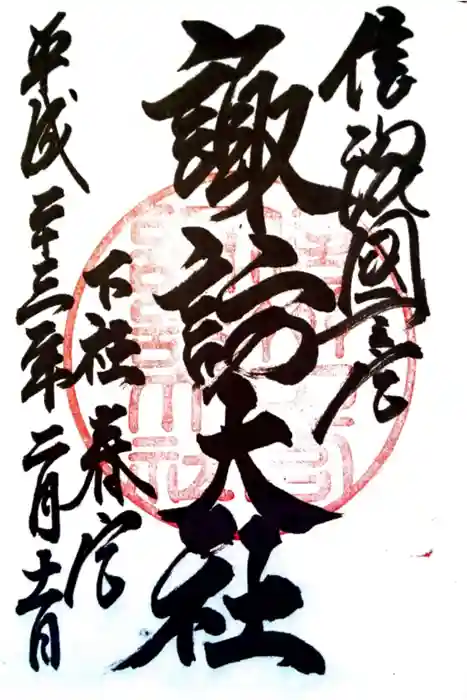 信濃國一之宮
諏訪大社
下社 春宮
平成二十三年二月十一日